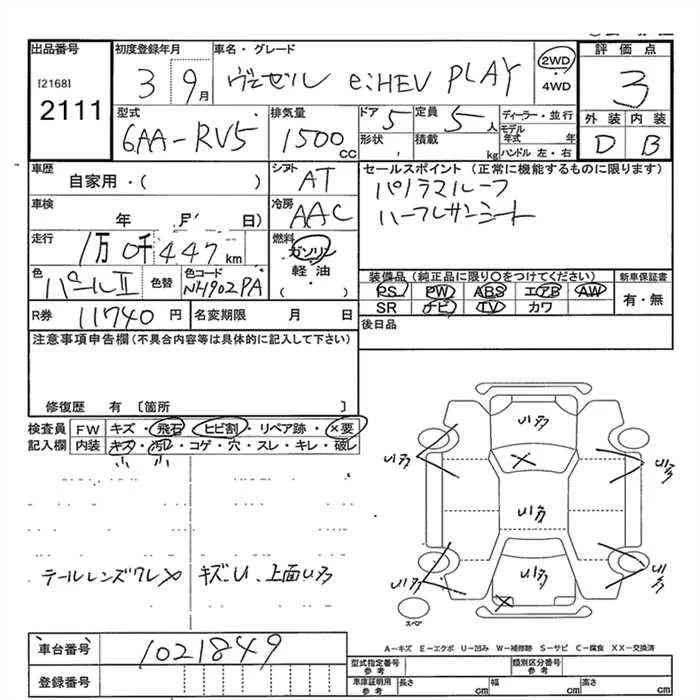 出品番号 初度登録年月 車名・グレード 評価点
[2168] 2111
3 9月 ヴェゼル e:HEV PLAY 2WD・4WD 3
型式 排気量 ドア 定員 ディーラー・並行 外装 内装
6AA-RV5 1500cc 5 5人 モデル年式 年 D B
形状 積載 kg ハンドル 左・右
車歴 シフト セールスポイント (正常に機能するものに限ります)
自家用・( ) AT パノラマルーフ
車検 冷房 ハーフレザーシート
年 月 日) AAC
走行 燃料
1万0千447km ガソリン・軽油・( )
色 色替 色コード 装備品 (純正品に限り○をつけてください) 新車保証書
パールII NH902PA PS PW ABS エアB AW 有・無
SR ナビ TV カワ
R券 11740円 名変期限 月 日 後日品
注意事項申告欄(不具合内容等は具体的に記入して下さい)
修復歴 有 〔箇所 〕
検査員 FW キズ・飛石・ヒビ割・リペア跡・×要
記入欄 内装 キズ・汚レ・コゲ・穴・スレ・キレ・破レ
小 小
U多
U多 × U多
U多
テールレンズワレ× キズU、上面U多
U多 U多 U多
×
スペア
車台番号 1021849
登録番号
A-キズ E-エクボ U-凹み W-補修跡 S-サビ C-腐食 XX-交換済
型式指定番号参考 類別区分番号参考
車庫証明用参考 長さ cm 幅 cm 高さ cm